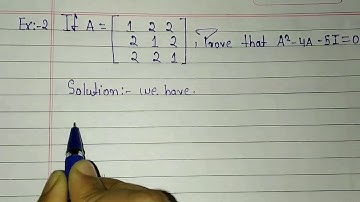 Ex:-2 If A = [ 1 2 2 , Prove that A²-4A-5I=0
2 1 2
2 2 1 ]
Solution:- we have.